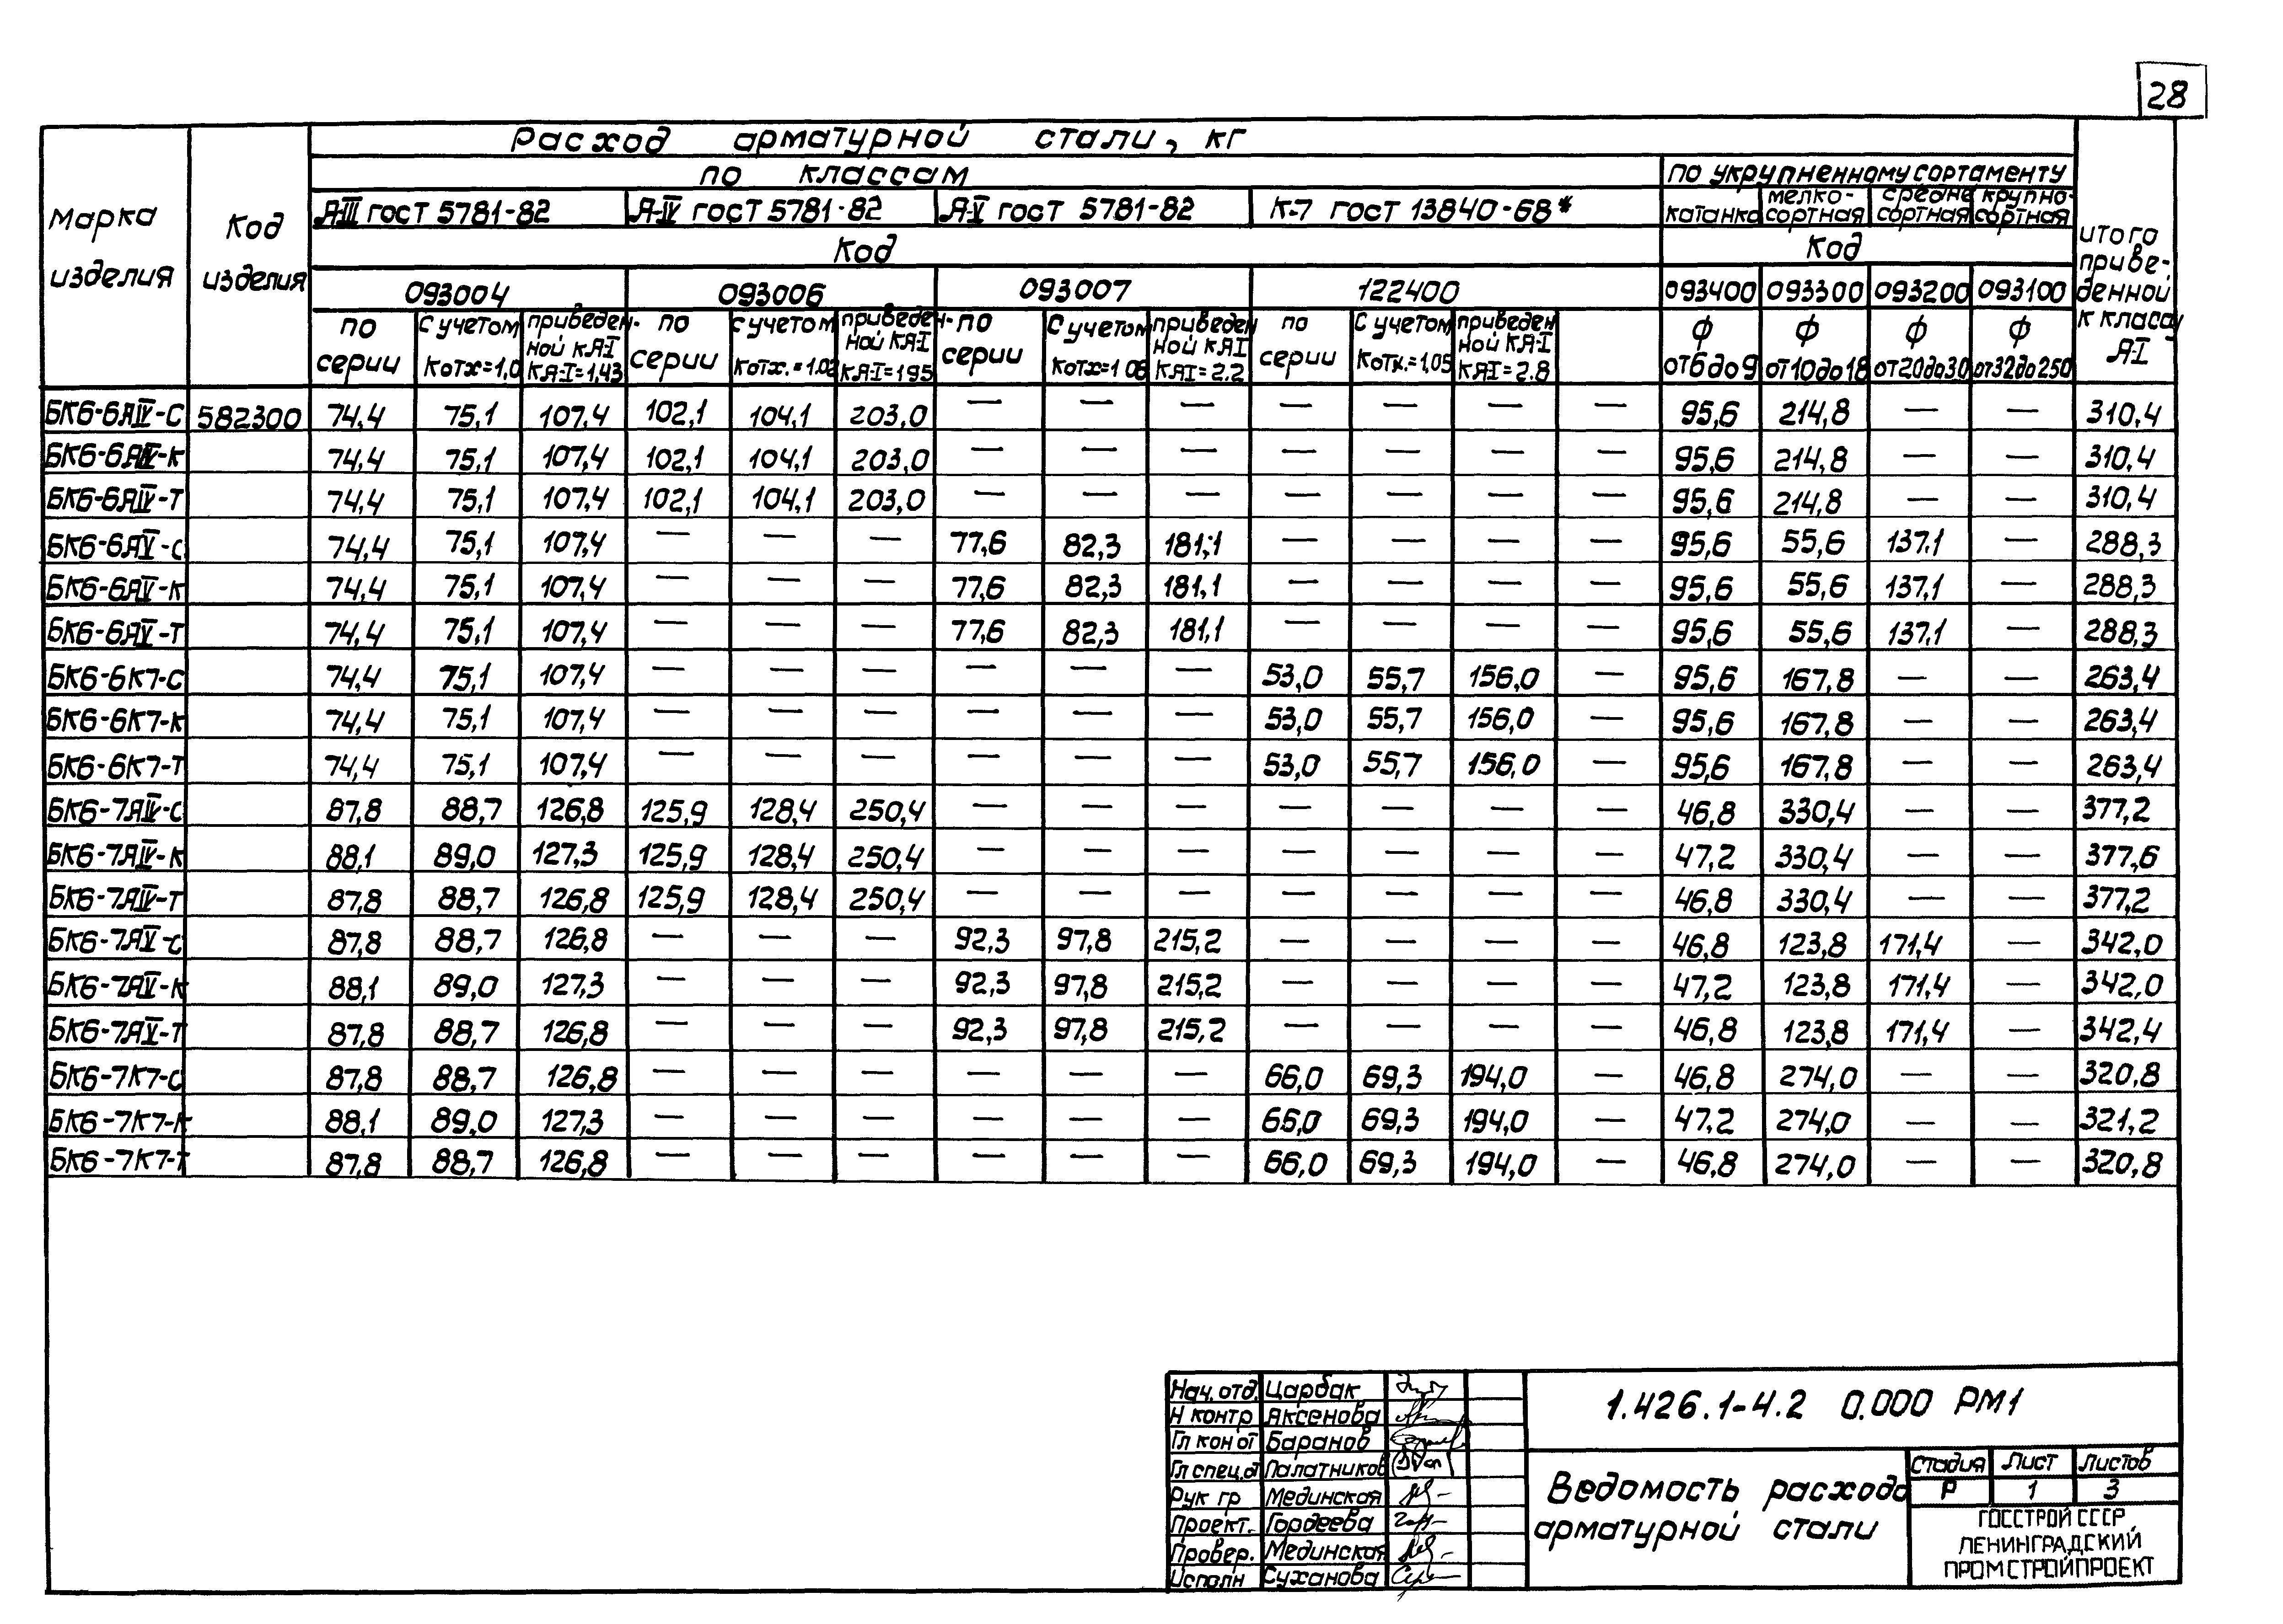 28
Расход арматурной стали, кг
по классам
по укрупненному сортаменту
Марка изделия
Код изделия
А-III ГОСТ 5781-82 А-IV ГОСТ 5781-82 А-V ГОСТ 5781-82 К-7 ГОСТ 13840-68*
катанка мелко-сортная средне сортная крупно-сортная
Итого приве-денной к классу А-I
Код Код
093004 093006 093007 122400 093400 093300 093200 093100
по серии С учетом Котх=1,0 приведен-ной кА-I КА-I=1,43 по серии С учетом Котх.=1.02 приведен-ной кА-I КА-I=1 95 по серии С учетом Котх=1 06 приведен ной кА-I КАI=2.2 по серии С учетом Котх.=1,05 приведен ной кА-I КАI=2.8 ф от 6 до 9 ф от 10 до 18 ф от 20 до 30 ф от 32 до 250
БК6-6АIV-С 582300 74,4 75,1 107,4 102,1 104,1 203,0 — — — — — — — 95,6 214,8 — — 310,4
БК6-6АIV-К 74,4 75,1 107,4 102,1 104,1 203,0 — — — — — — — 95,6 214,8 — — 310,4
БК6-6АIV-Т 74,4 75,1 107,4 102,1 104,1 203,0 — — — — — — — 95,6 214,8 — — 310,4
БК6-6АV-С 74,4 75,1 107,4 — — — 77,6 82,3 181,1 — — — — 95,6 55,6 137.1 — 288,3
БК6-6АV-К 74,4 75,1 107,4 — — — 77,6 82,3 181,1 — — — — 95,6 55,6 137,1 — 288,3
БК6-6АV-Т 74,4 75,1 107,4 — — — 77,6 82,3 181,1 — — — — 95,6 55,6 137,1 — 288,3
БК6-6К7-С 74,4 75,1 107,4 — — — — — — 53,0 55,7 156,0 — 95,6 167,8 — — 263,4
БК6-6К7-К 74,4 75,1 107,4 — — — — — — 53,0 55,7 156,0 — 95,6 167,8 — — 263,4
БК6-6К7-Т 74,4 75,1 107,4 — — — — — — 53,0 55,7 156,0 — 95,6 167,8 — — 263,4
БК6-7АIV-С 87,8 88,7 126,8 125,9 128,4 250,4 — — — — — — — 46,8 330,4 — — 377,2
БК6-7АIV-К 88,1 89,0 127,3 125,9 128,4 250,4 — — — — — — — 47,2 330,4 — — 377,6
БК6-7АIV-Т 87,8 88,7 126,8 125,9 128,4 250,4 — — — — — — — 46,8 330,4 — — 377,2
БК6-7АV-С 87,8 88,7 126,8 — — — 92,3 97,8 215,2 — — — — 46,8 123,8 171,4 — 342,0
БК6-7АV-К 88,1 89,0 127,3 — — — 92,3 97,8 215,2 — — — — 47,2 123,8 171,4 — 342,0
БК6-7АV-Т 87,8 88,7 126,8 — — — 92,3 97,8 215,2 — — — — 46,8 123,8 171,4 — 342,4
БК6-7К7-С 87,8 88,7 126,8 — — — — — — 66,0 69,3 194,0 — 46,8 274,0 — — 320,8
БК6-7К7-К 88,1 89,0 127,3 — — — — — — 65,0 69,3 194,0 — 47,2 274,0 — — 321,2
БК6-7К7-Т 87,8 88,7 126,8 — — — — — — 66,0 69,3 194,0 — 46,8 274,0 — — 320,8
Нач. отд. Царбак
Н контр Аксенова
Гл кон от Баранов
Гл спец.от Палатников
Рук гр Мединская
Проект. Гордеева
Провер. Мединская
Исполн Суханова
1.426.1-4.2 0.000 РМ1
Ведомость расхода
арматурной стали
Стадия Лист Листов
Р 1 3
ГОССТРОЙ СССР
ЛЕНИНГРАДСКИЙ
ПРОМСТРОЙПРОЕКТ